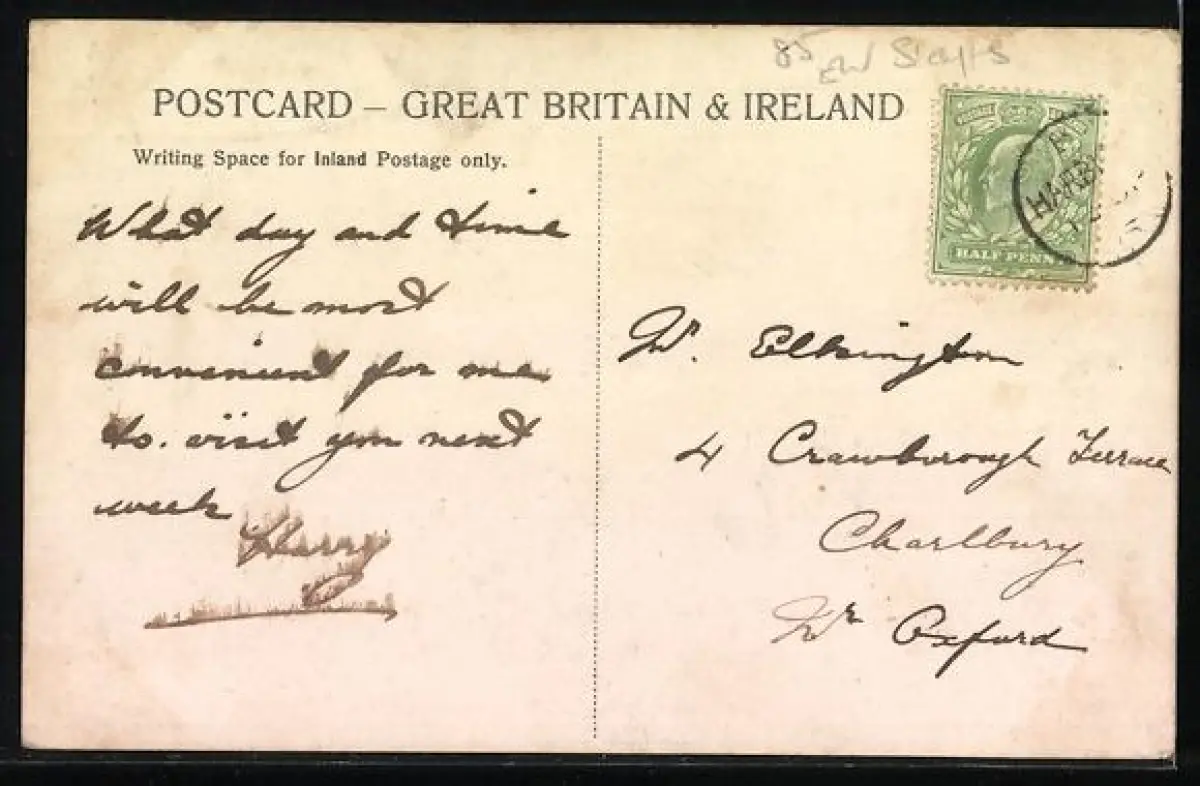 85
POSTCARD – GREAT BRITAIN & IRELAND
Writing Space for Inland Postage only.
What day and time
will be most
convenient for me
to. visit you next
week
Harry
HALF PENNY
HARB
Mr. Elkington
4 Crawborough Terrace
Charlbury
Nr Oxford